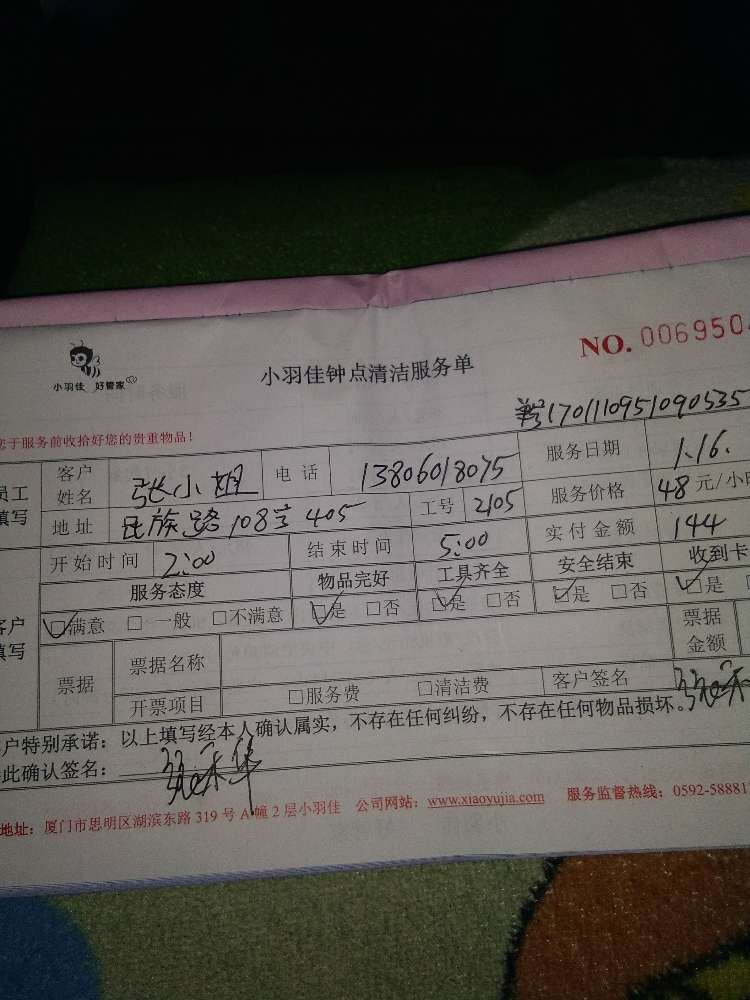 小羽佳 好管家
小羽佳钟点清洁服务单
NO. 006950
1701110951090535
您于服务前收拾好您的贵重物品！
员工填写 客户姓名 张小姐 电话 13806018075 服务日期 1.16.
地址 民族路108号405 工号 2105 服务价格 48元/小时
开始时间 2:00 结束时间 5:00 实付金额 144
客户填写 服务态度 物品完好 工具齐全 安全结束 收到卡
□满意 □一般 □不满意 □是 □否 □是 □否 □是 □否 □是
票据 票据名称 票据金额
开票项目 □服务费 □清洁费 客户签名
户特别承诺：以上填写经本人确认属实，不存在任何纠纷，不存在任何物品损坏。
此确认签名：
地址：厦门市思明区湖滨东路319号A幢2层小羽佳 公司网站：www.xiaoyujia.com 服务监督热线：0592-58881